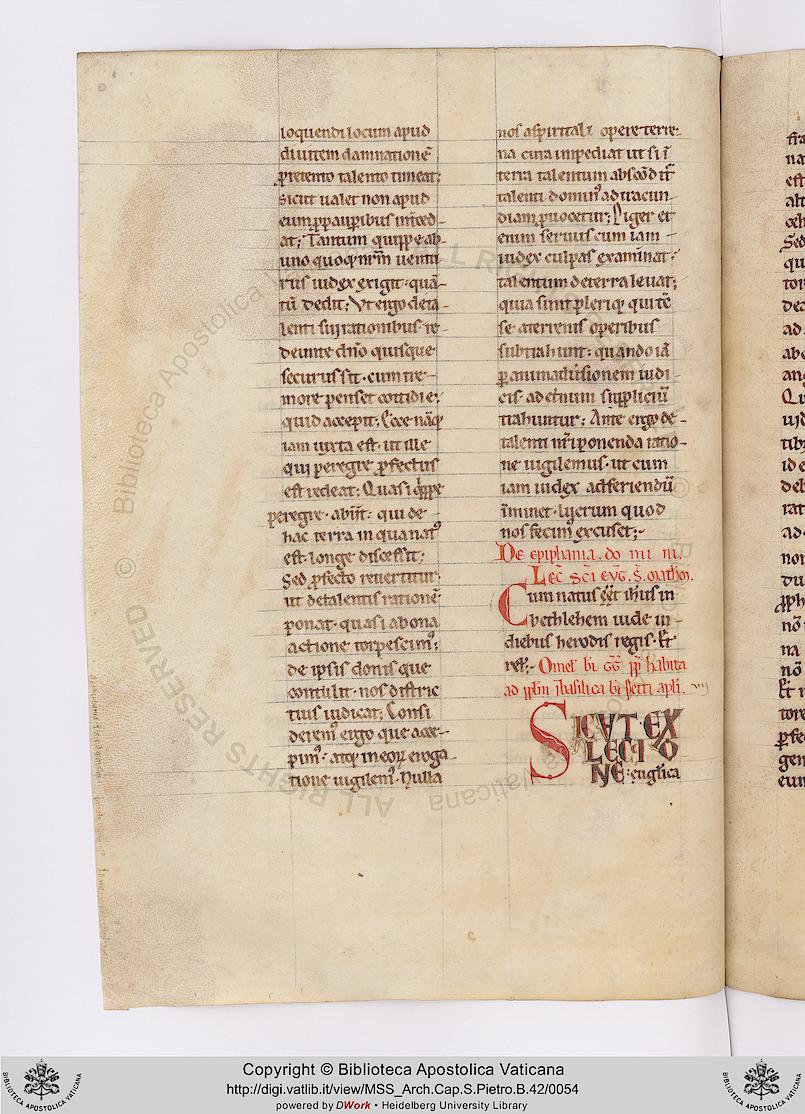 loquendi locum apud
diuitem damnationē
p̱retento talento timeat;
Sicut ualet non apud
eum ꝓpauꝑibus inṫced-
at; Tantum quippe ab-
uno quoq; nr̄m uentu
rus iudex exigit · quā-
tū dedit; Vt ergo de ta-
lenti sui rationibus re-
deunte dn̄o quisque
securus sit · cum tre-
more penset cottidie;
quid accepit; Ecce nāq;
iam iuxta est · ut ille
qui peregre ꝓfectus
est redeat; Quasi q̱ppe
peregre · abiit · qui de-
hac terra in qua nat᷒
est · longe discessit;
Sed ꝓfecto reuertitur·
ut detalentis rationē
ponat · quasi abona
actione torpescim᷒;
de ipsis donis que
contulit · nos distric
tius iudicat; Consi
derem᷒ ergo que acce-
pim᷒ · atq; in eoꝝ eroga-
tione uigilem᷒ · Nulla
nos aspiritali opere terre-
na cura impediat ut si ī
terra talentum abscōdit᷑
talenti domin᷒ adiracun-
diam ꝓuocetur; Piger et
enim seruus cum iam -
iudex culpas examinat·
talentum deterra leuat;
quia sunt plerique qui tē
se · aterrenis operibus
subtrahunt · quando iā
ꝑ animaduersionem iudi-
cis · ad et̄num suppliciū
trahuntur; Ante ergo de-
talenti nr̄i ponenda ratio-
ne uigilemus · ut cum
iam iudex adferiendū
īminet · lucrum quod
nos fecim᷒ excuset;·
De epiphania . do mi ni.
Lec̄ . Sc̄i eug̅ . S̄. matheu̅.
Cum natus eēt ih̄us in
bethlehem iude in-
diebus herodis regis · Et
rel̄;· Omel̄ bi GG̅ pp̄ habita
ad pl̄m ī basilica bi petri apl̄i.
SICUT · EX
LECTIO
NE : euglica
Copyright © Biblioteca Apostolica Vaticana
http://digi.vatlib.it/view/MSS_Arch.Cap.S.Pietro.B.42/0054
powered by DWork • Heidelberg University Library